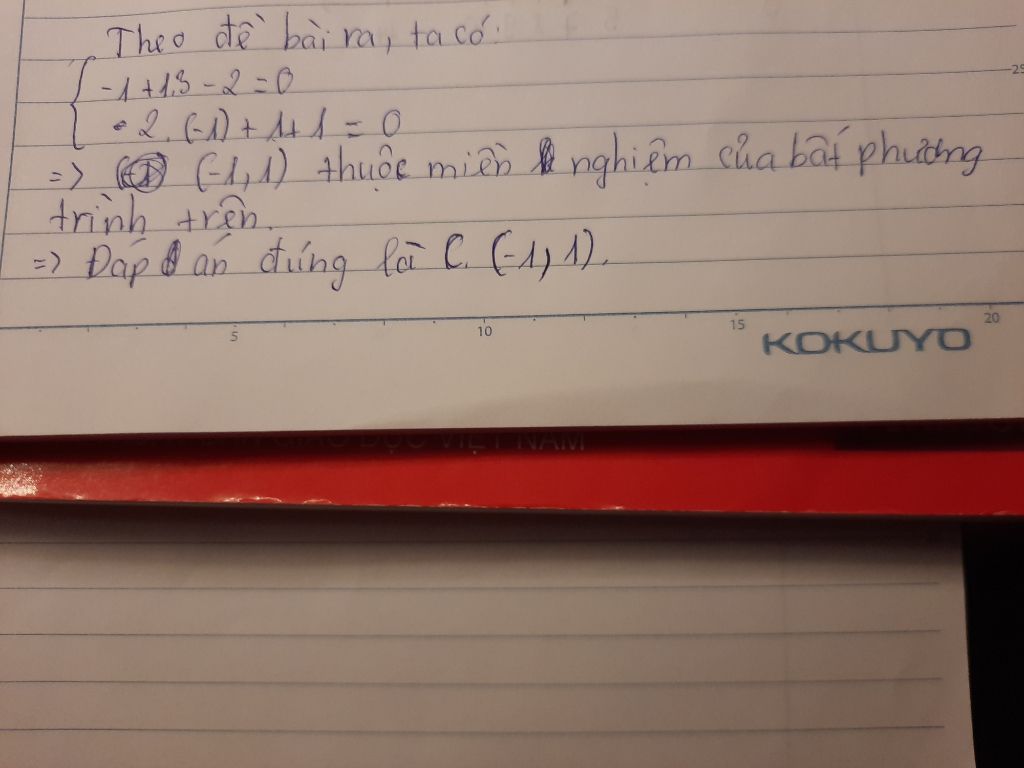 Theo đề bài ra, ta có:
-1+1.3-2=0
2.(-1)+1+1=0
=> (-1,1) thuộc miền nghiệm của bất phương
trình trên.
=> Đáp án đúng là C. (-1,1).
25
5 10 15 20
KOKUYO
GIÁO DỤC VIỆT NAM